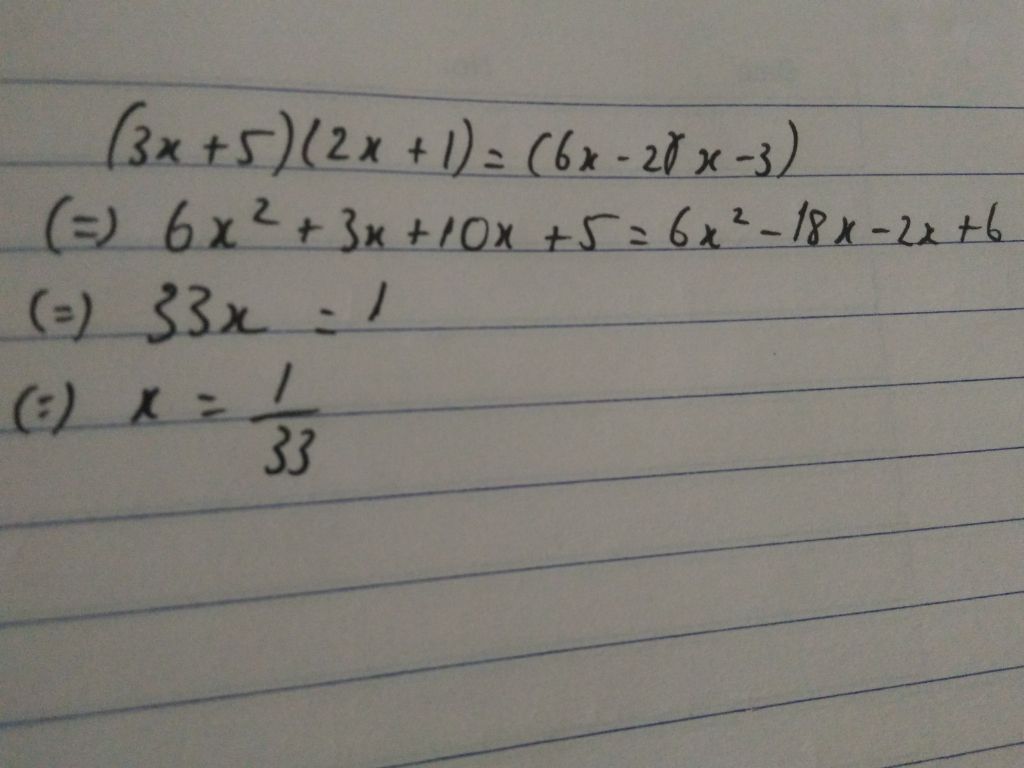 (3x + 5)(2x + 1) = (6x - 2)(x - 3)
(=) 6x² + 3x + 10x + 5 = 6x² - 18x - 2x + 6
(=) 33x = 1
(=) x = 1/33